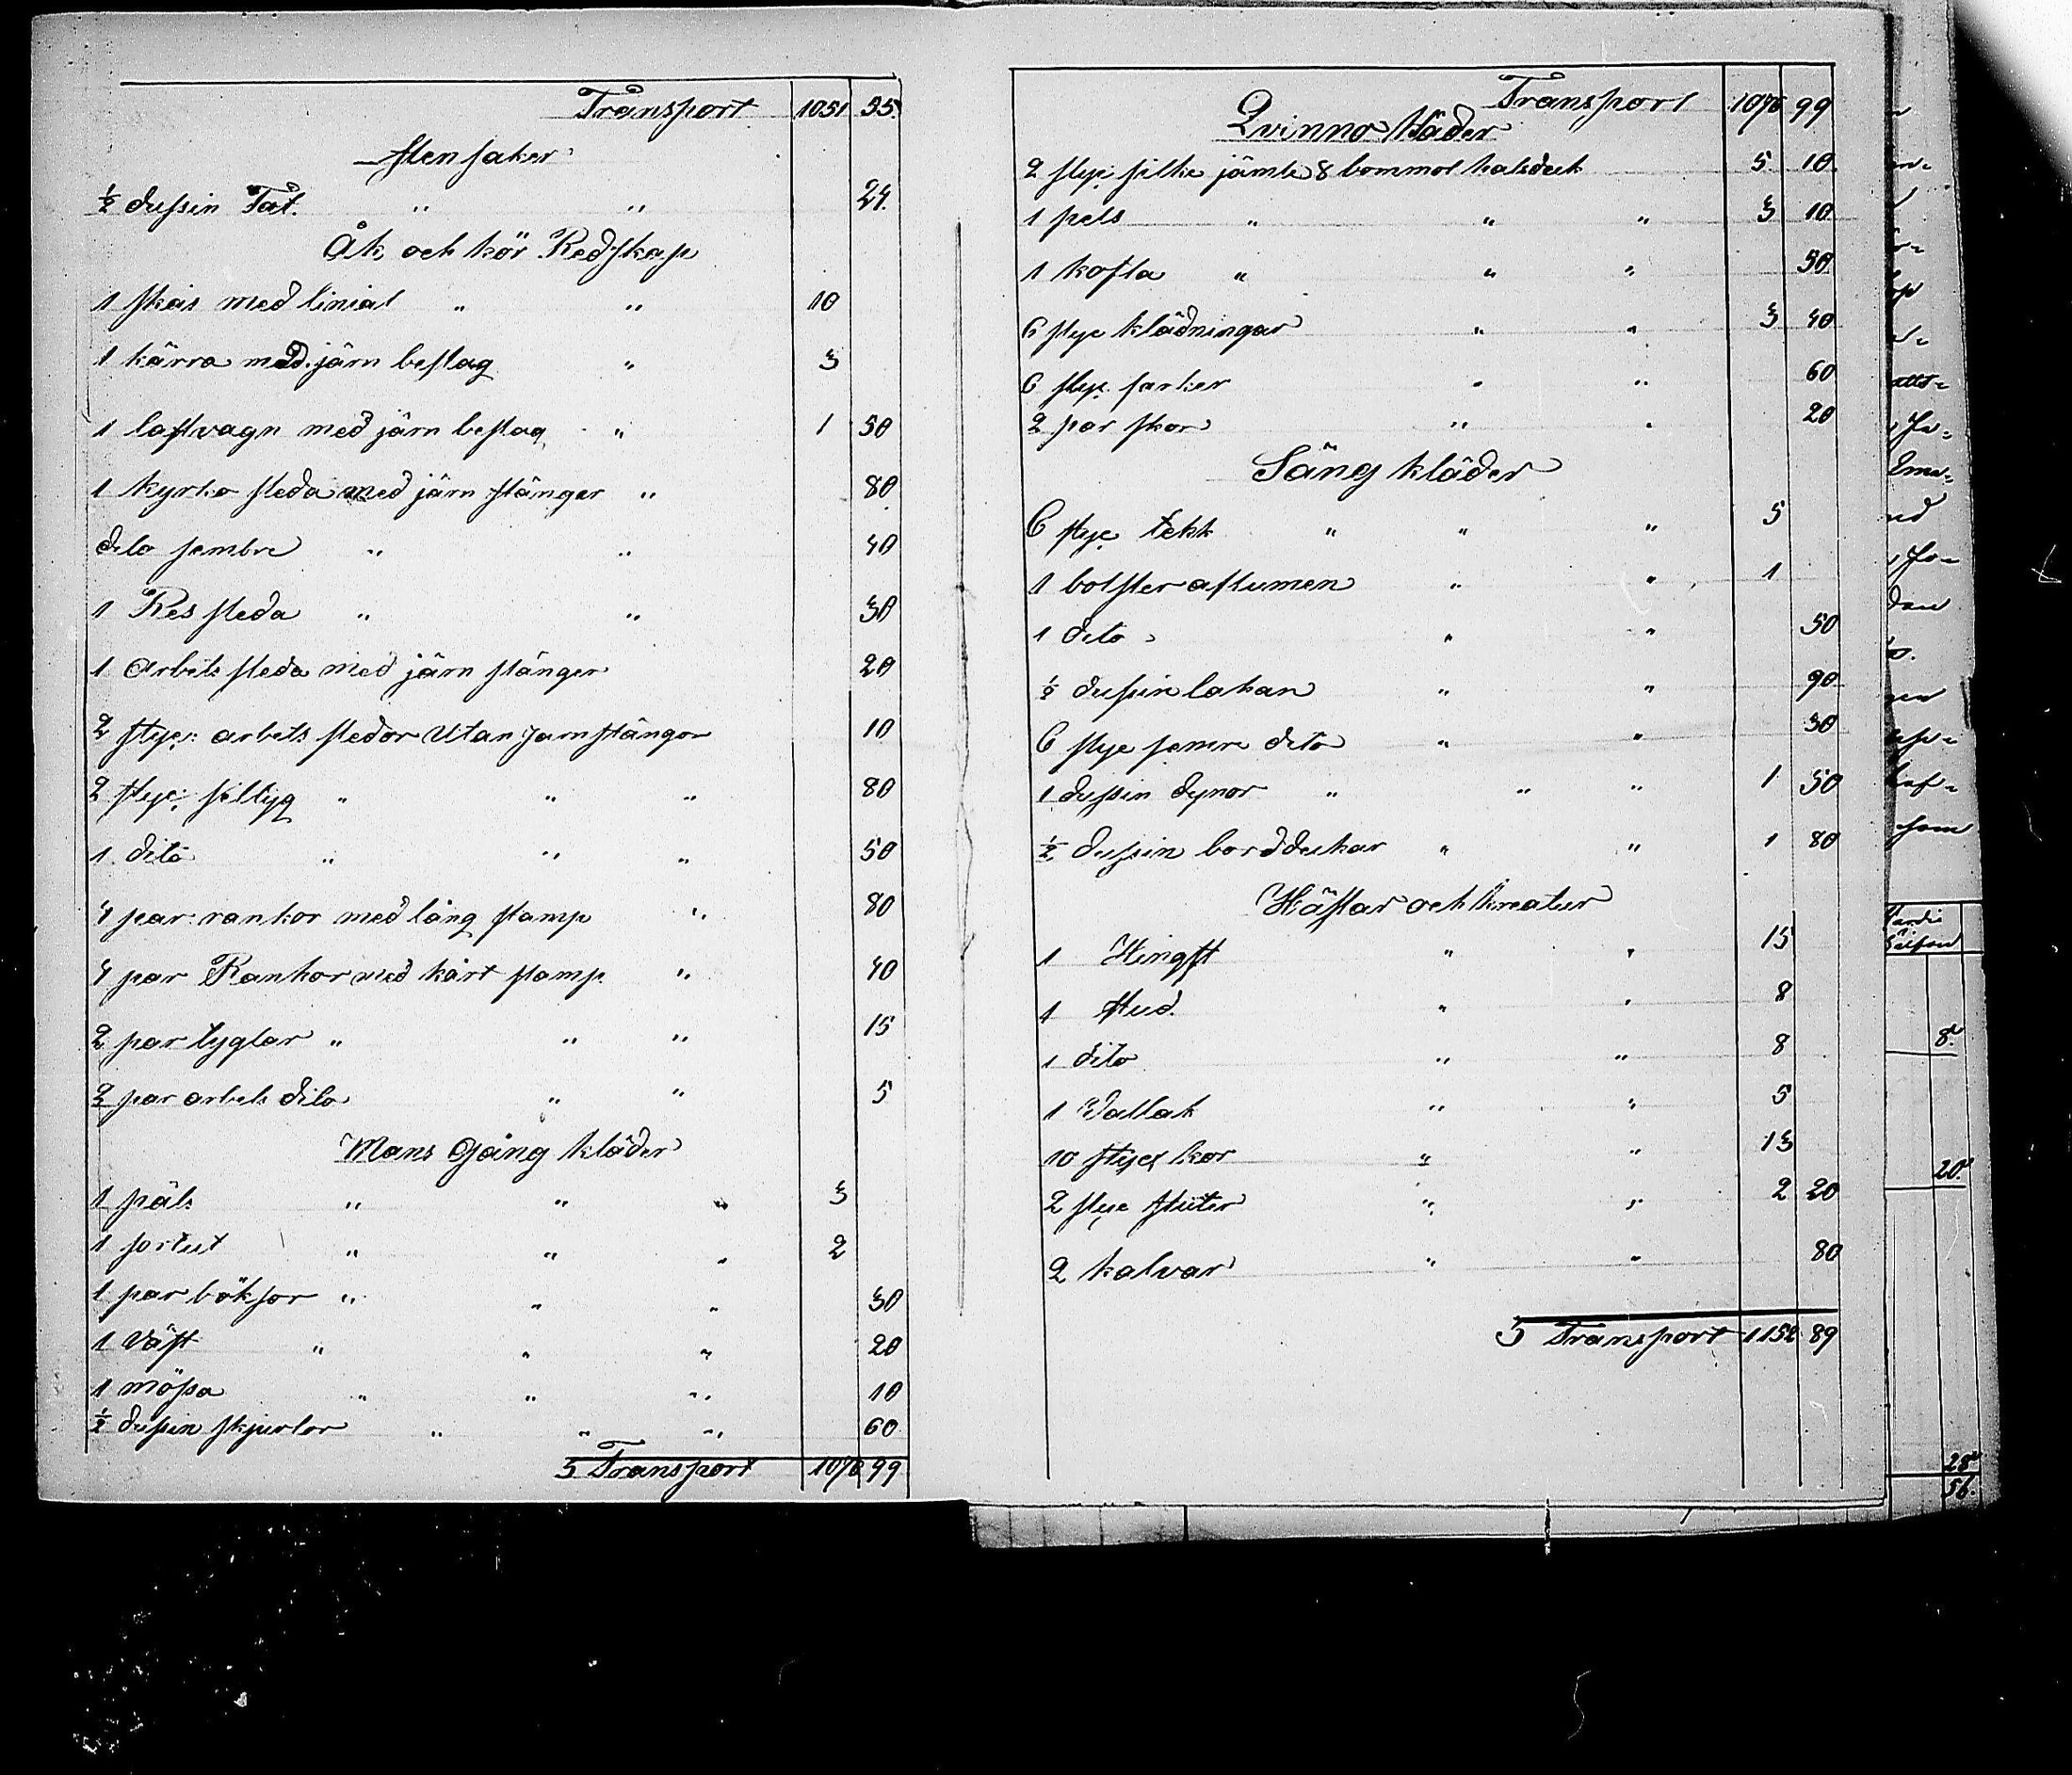 Transport 1051 35
Sten saker
½ dussin Fat. " " 24.
Åk och kör Redskap
1 skäs med linial " " 10
1 kärra med järn beslag " 3
1 lastvagn med järn beslag " 1 50
1 kyrko släda med järn stänger " 80
dito sembre " " 40
1 Res släda " " 30
1 Arbets släda med järn stänger 20
2 styc: arbets slädor utan järnstänger 10
2 styc: siltyg " " " 80
1 dito " " " 50
4 par rankor med lång stamp " 80
4 par Rankor med kårt stamp. " 40
2 par tyglar " " " 15
2 par arbets dito " " 5
Mans Gång kläder
1 päls " " " 3
1 sortut " " " 2
1 par böksor " " " 30
1 väst " " " 20
1 mössa " " " 10
½ dussin skjurtor " " " 60
S Transport 1076 99
Transport 1076 99
Qvinno kläder
2 styc silke jämte 8 bommol halsduk 5 10
1 pels " " " 3 10
1 kofta " " " 50
6 styc klädningar " " 3 40
6 styc. särker " " 60
2 par skor " " 20
Säng kläder
6 styc täkk " " " 5
1 bolster af lumen " " 1
1 dito " " 50
½ dussin lakan " " 90
6 styc semre dito " " 30
1 dussin dynor " " " 1 50
½ dussin borddukar " " 1 80
Hästar och kreatur
1 Hingst " " 15
1 stud. " " 8
1 dito " " 8
1 Vallak " " 5
10 styck kor " " 13
2 styc stuter " " 2 20
2 kalvar " " 80
S Transport 1152 89
8
20
28
56.